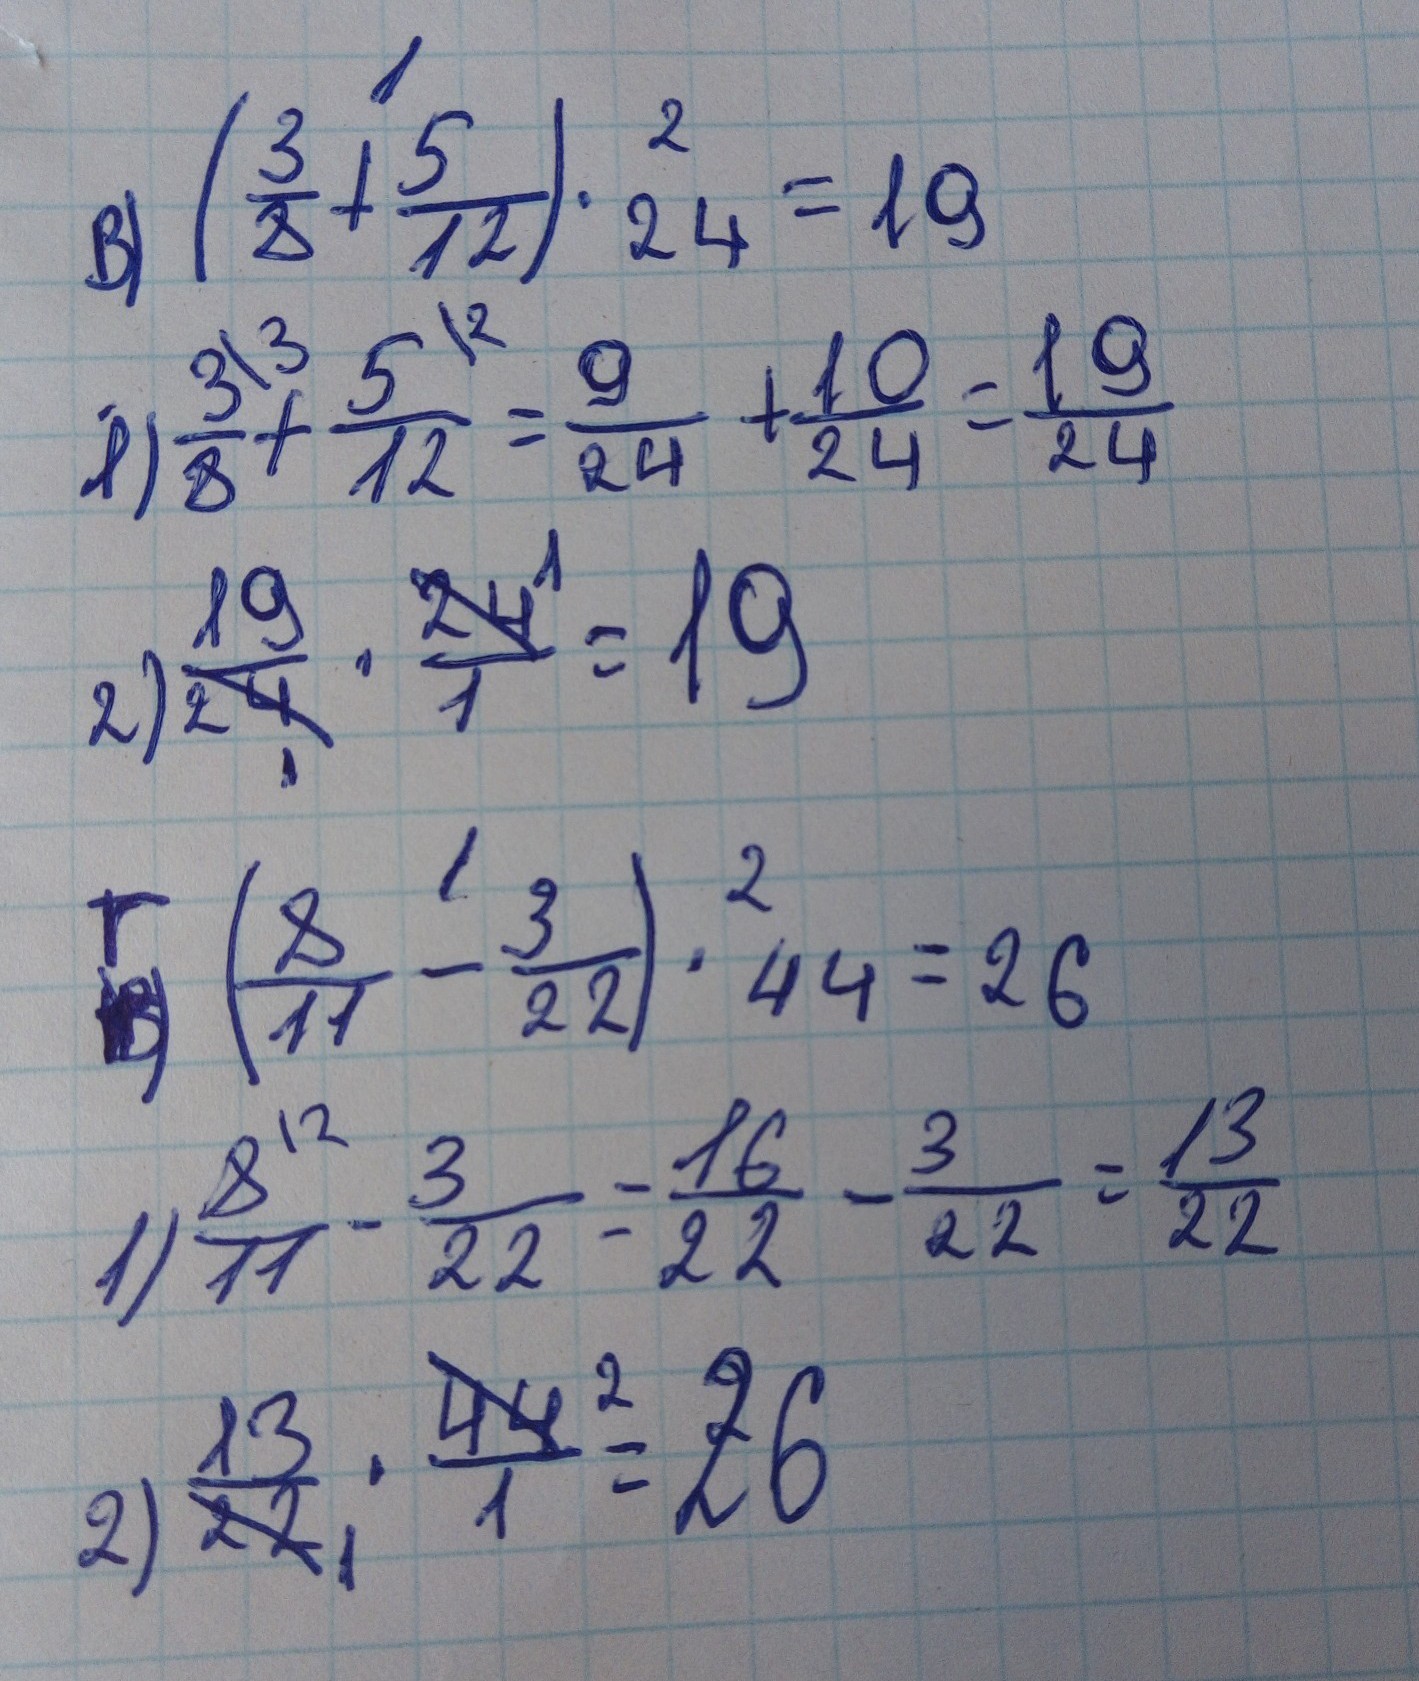 1 2
В) (3/8 + 5/12) · 24 = 19
1) 3\3/8 + 5\2/12 = 9/24 + 10/24 = 19/24
2) 19/24 1 · 24 1/1 = 19
1 2
Г) (8/11 - 3/22) · 44 = 26
1) 8\2/11 - 3/22 = 16/22 - 3/22 = 13/22
2) 13/22 1 · 44 2/1 = 26